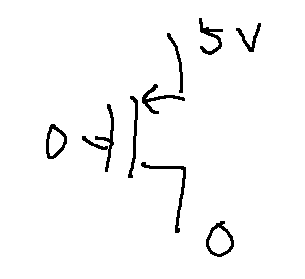 5V
0
0